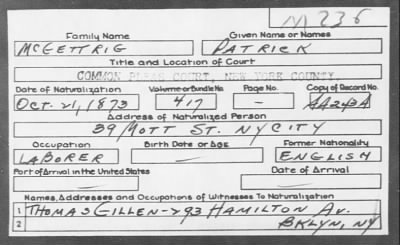 M 236
Family Name Given Name or Names
McGETTRIG PATRICK
Title and Location of Court
COMMON PLEAS COURT, NEW YORK COUNTY.
Date of Naturalization Volume or Bundle No. Page No. Copy of Record No.
OCT. 21, 1873 417 —
Address of Naturalized Person
39 MOTT ST. NY CITY
Occupation Birth Date or Age Former Nationality
LABORER — ENGLISH
Port of Arrival in the United States Date of Arrival
— —
Names, Addresses and Occupations of Witnesses To Naturalization
1 THOMAS GILLEN -> 93 HAMILTON AV.
2 BKLYN, NY